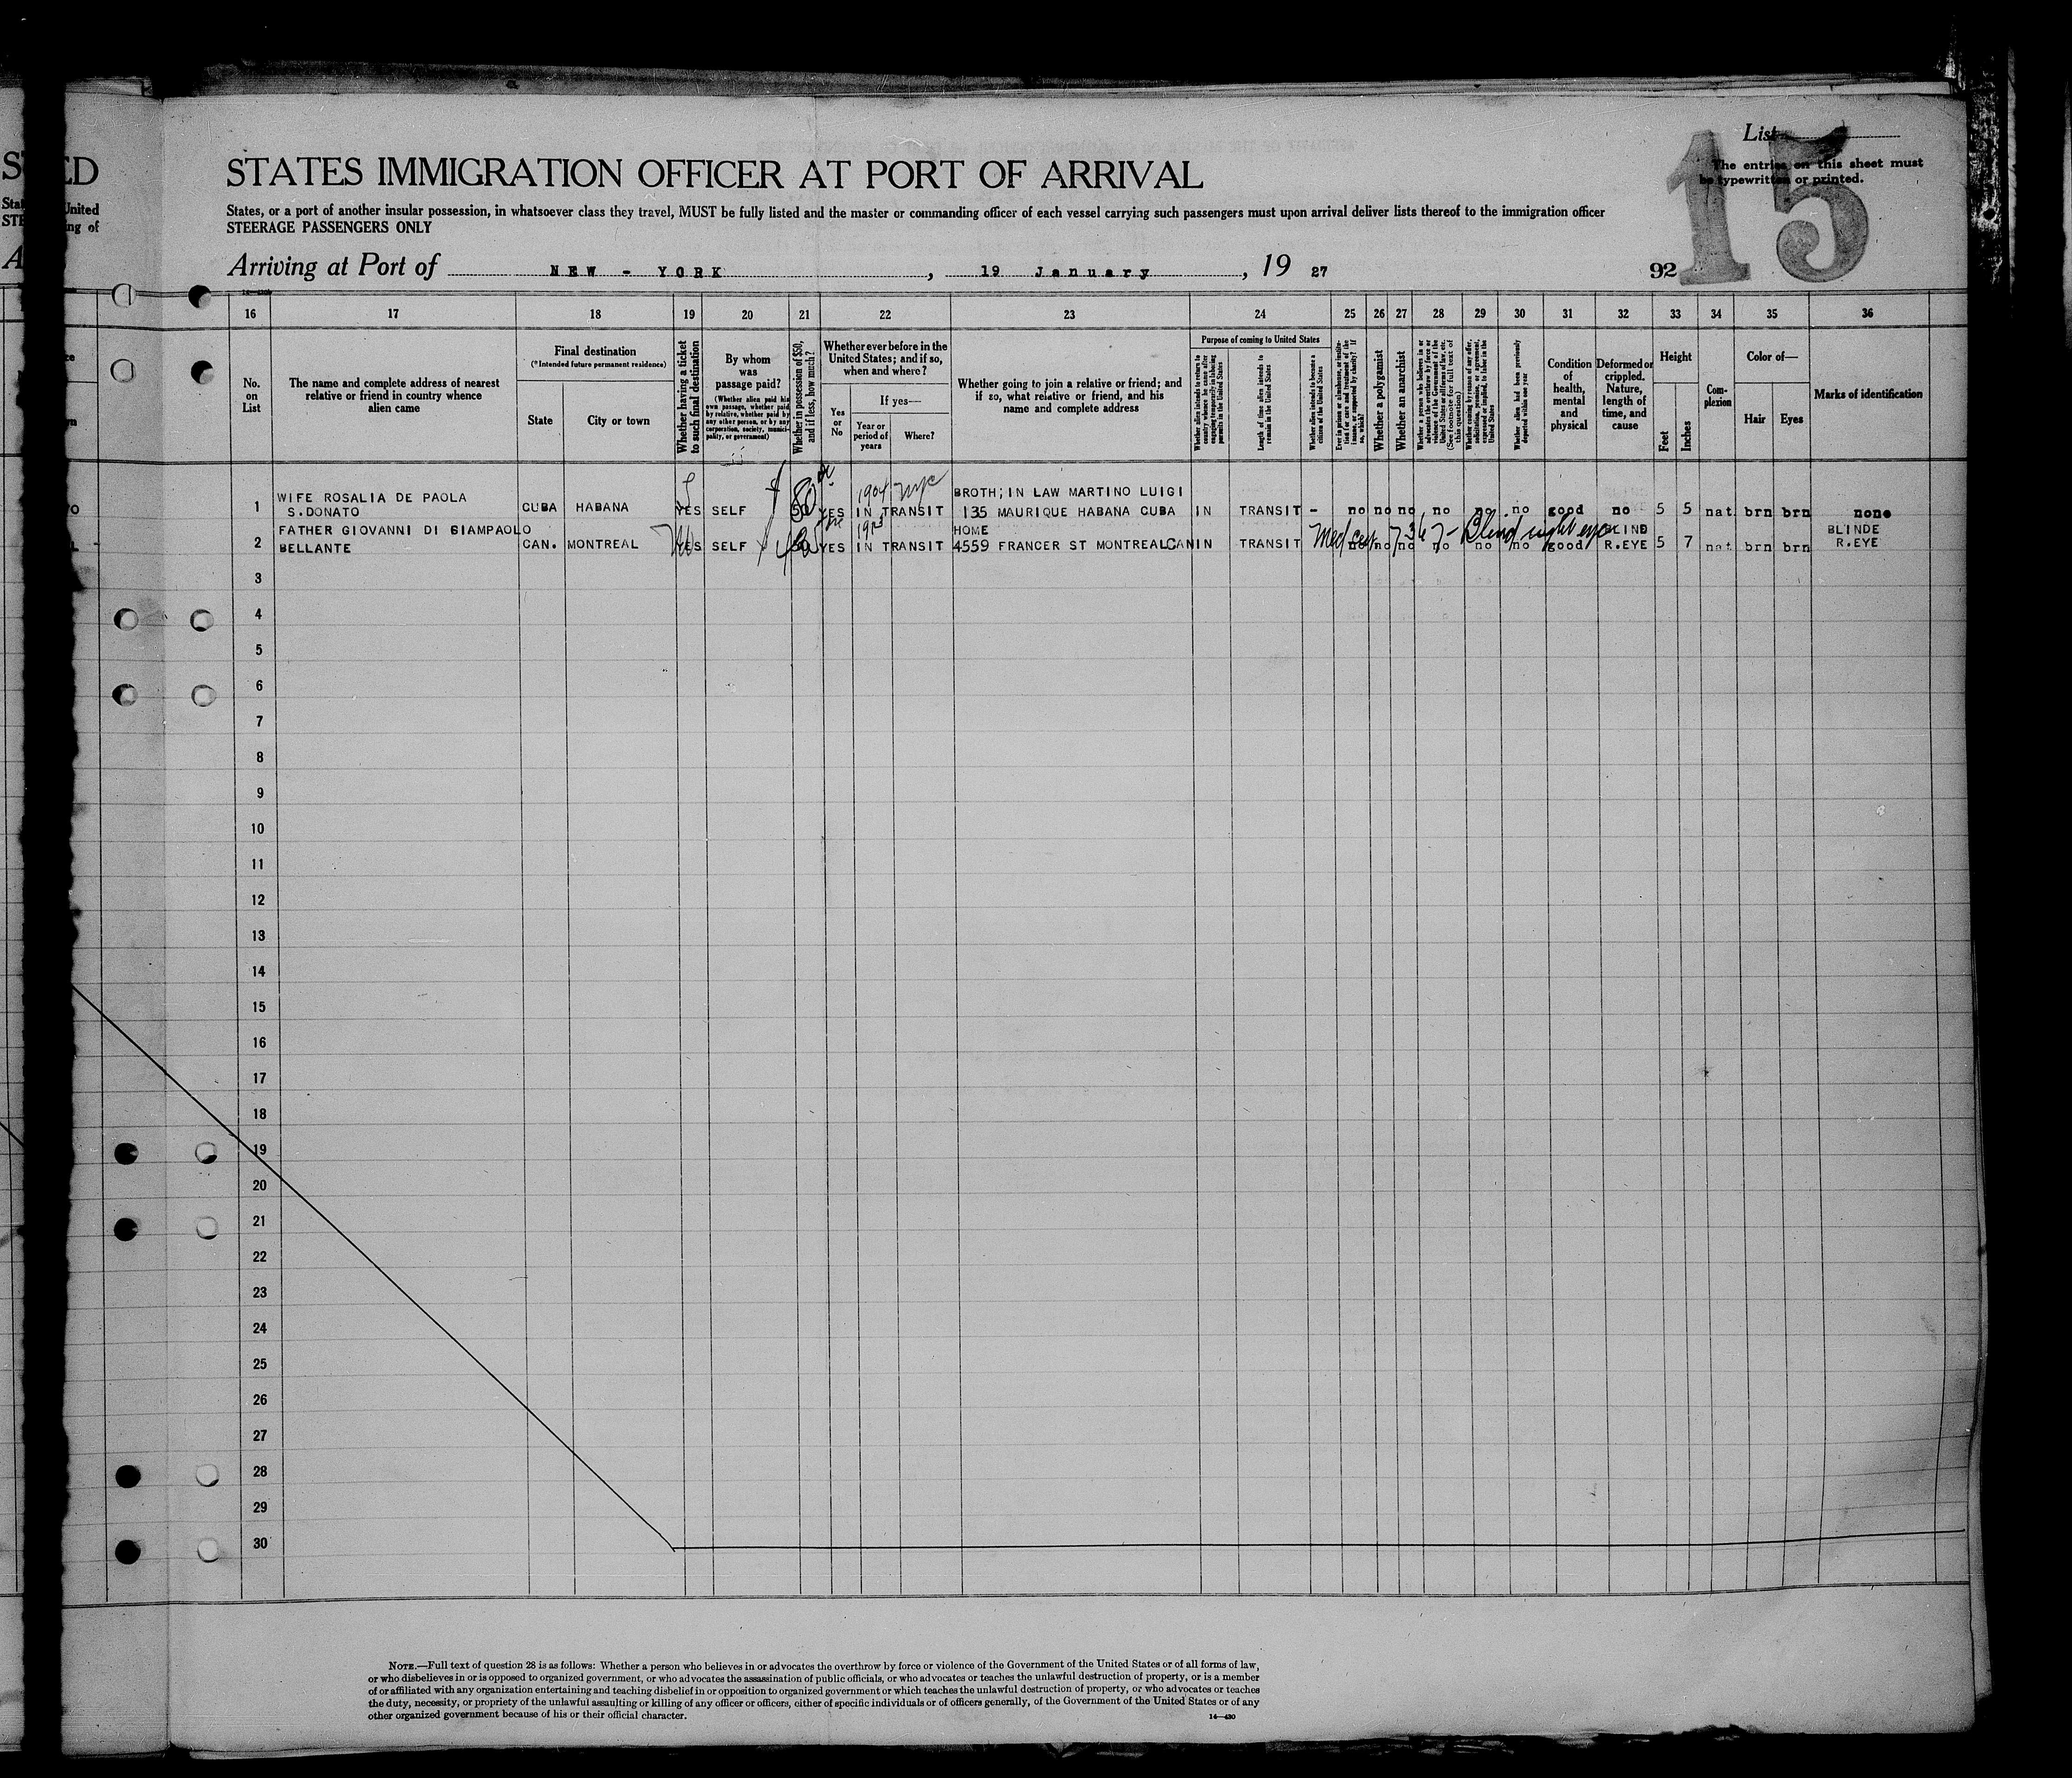 List
15
The entries on this sheet must
be typewritten or printed.
STATES IMMIGRATION OFFICER AT PORT OF ARRIVAL
States, or a port of another insular possession, in whatsoever class they travel, MUST be fully listed and the master or commanding officer of each vessel carrying such passengers must upon arrival deliver lists thereof to the immigration officer
STEERAGE PASSENGERS ONLY
Arriving at Port of NEW - YORK, 19 January, 19 27
92
16 17 18 19 20 21 22 23 24 25 26 27 28 29 30 31 32 33 34 35 36
No. on List
The name and complete address of nearest relative or friend in country whence alien came
Final destination
(*Intended future permanent residence)
State
City or town
Whether having a ticket to such final destination
By whom was passage paid?
(Whether alien paid his own passage, whether paid by relative, whether paid by any other person, or by any corporation, society, municipality, or government)
Whether in possession of $50, and if less, how much?
Whether ever before in the United States; and if so, when and where?
Yes or No
If yes—
Year or period of years
Where?
Whether going to join a relative or friend; and if so, what relative or friend, and his name and complete address
Purpose of coming to United States
Whether alien intends to return to country whence he came after engaging temporarily in laboring pursuits in the United States
Length of time alien intends to remain in the United States
Whether alien intends to become a citizen of the United States
Ever in prison or almshouse, or institution for care and treatment of the insane, or supported by charity? If so, which?
Whether a polygamist
Whether an anarchist
Whether a person who believes in or advocates the overthrow by force or violence of the Government of the United States or all forms of law, etc. (See footnote for full text of this question)
Whether coming by reason of any offer, solicitation, promise, or agreement, expressed or implied, to labor in the United States
Whether alien had been previously deported within one year
Condition of health, mental and physical
Deformed or crippled. Nature, length of time, and cause
Height
Feet
Inches
Complexion
Color of—
Hair
Eyes
Marks of identification
1904 nyc
WIFE ROSALIA DE PAOLA BROTH;IN LAW MARTINO LUIGI
1 S.DONATO CUBA HABANA YES SELF YES IN TRANSIT 135 MAURIQUE HABANA CUBA IN TRANSIT - no no no no no no good no 5 5 nat. brn brn none
FATHER GIOVANNI DI GIAMPAOLO 1923 HOME Med cert 7367- Blind right eye BLIND BLINDE
2 BELLANTE CAN. MONTREAL YES SELF YES IN TRANSIT 4559 FRANCER ST MONTREAL CAN IN TRANSIT no no no no no no good R.EYE 5 7 nat brn brn R.EYE
3
4
5
6
7
8
9
10
11
12
13
14
15
16
17
18
19
20
21
22
23
24
25
26
27
28
29
30
NOTE.—Full text of question 28 is as follows: Whether a person who believes in or advocates the overthrow by force or violence of the Government of the United States or of all forms of law,
or who disbelieves in or is opposed to organized government, or who advocates the assassination of public officials, or who advocates or teaches the unlawful destruction of property, or is a member
of or affiliated with any organization entertaining and teaching disbelief in or opposition to organized government or which teaches the unlawful destruction of property, or who advocates or teaches
the duty, necessity, or propriety of the unlawful assaulting or killing of any officer or officers, either of specific individuals or of officers generally, of the Government of the United States or of any
other organized government because of his or their official character.
14—430